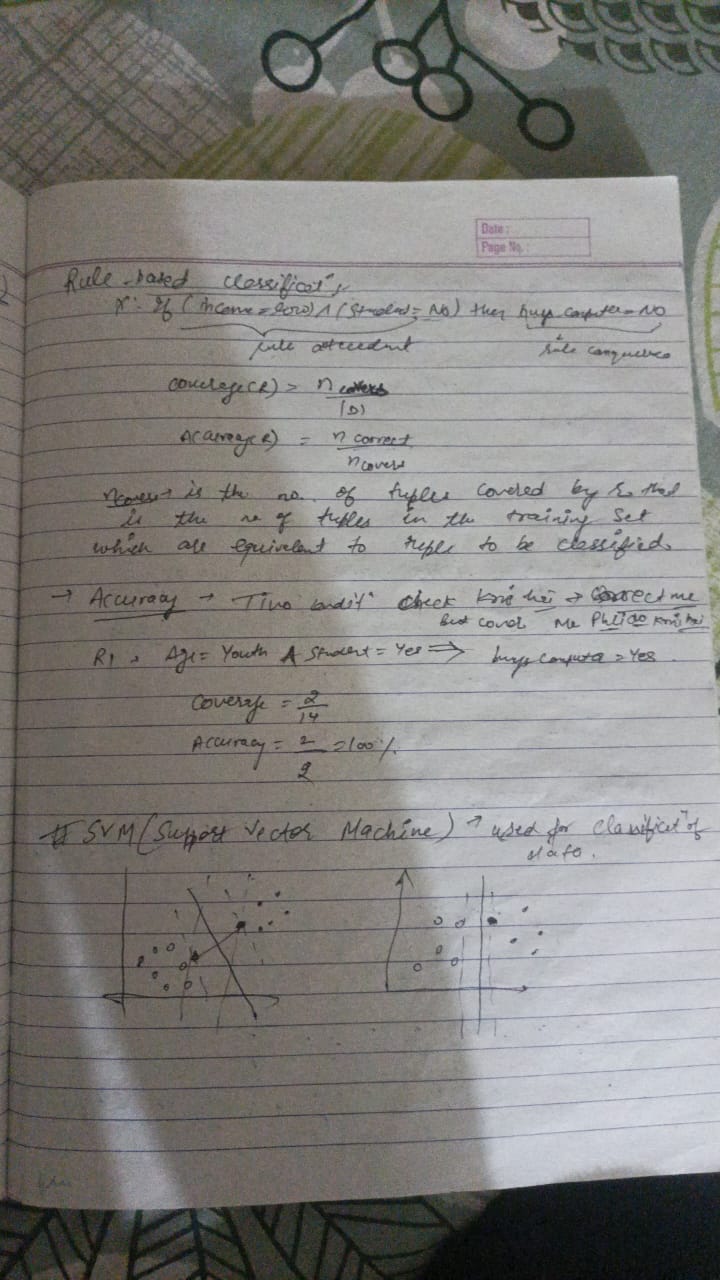 Date :
Page No. :
Rule based classificatⁿ
r: If (income = zero) ∧ (Student = No) then buys computer = NO
rule
rule
coverage(R) = n covers
|D|
Accuracy(R) = n correct
n covers
ncovers → is the no. of tuples covered by r that
is the no of tuples in the training set
which are equivalent to tuple to be classified
→ Accuracy → Two conditⁿ check krni hai → Correct me
but cover me krni hai
R1 → Age = Youth ∧ Student = Yes ⇒ buys computer = Yes.
Coverage = 2
14
Accuracy = 2 = 100%.
2
# SVM (Support Vector Machine) → used for Classificatⁿ of
data.